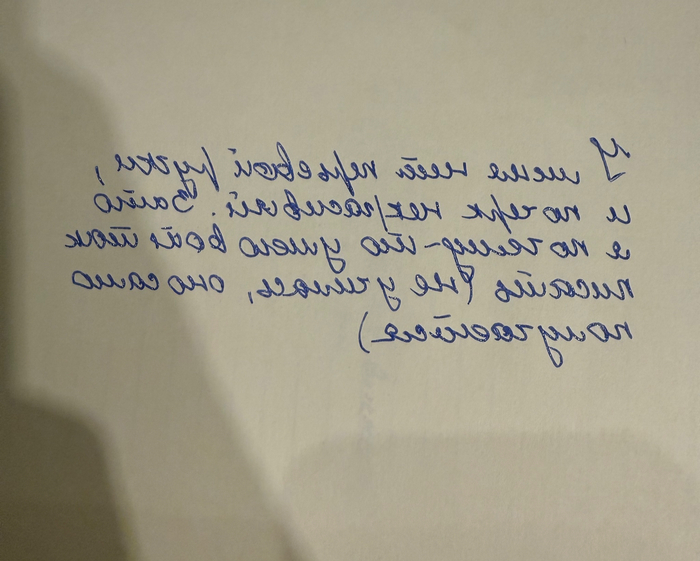 У меня нет перьевой ручки,
и почерк некрасивый. Зато
я почему-то умею вот так
писать (не училась, оно само
получается)